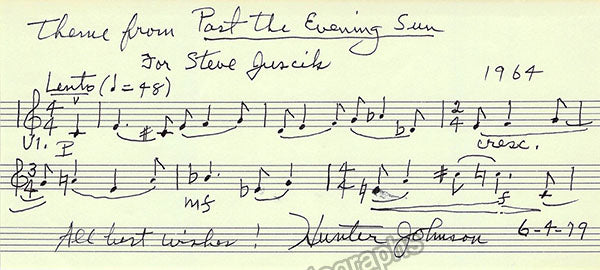 Theme from Past the Evening Sun
For Steve Juscik
1964
Lento (♩ = 48)
4 4
2 4
Vl. P
cresc.
3 4
4 4
mf
f
All best wishes! Hunter Johnson 6-4-79